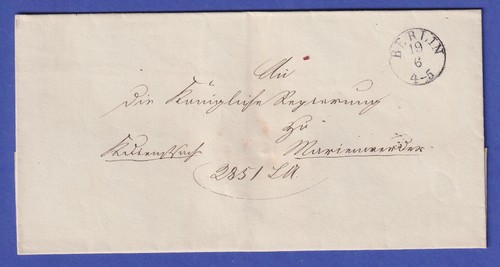 BERLIN
19
6
4-5
An
die Königliche Regierung
zu
Marienwerder
2851 LA.